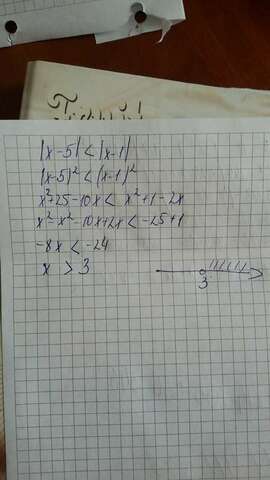 |x-5| < |x-1|
(x-5)² < (x-1)²
x²+25-10x < x²+1-2x
x²-x²-10x+2x < -25+1
-8x < -24
x > 3
3